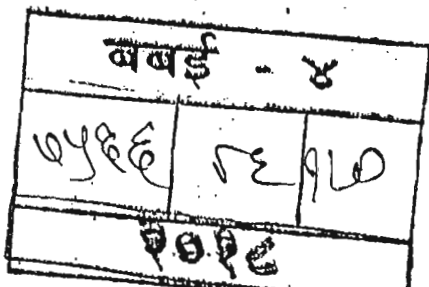 बबई - ४
७५६६ ८६ १७०
२०१८